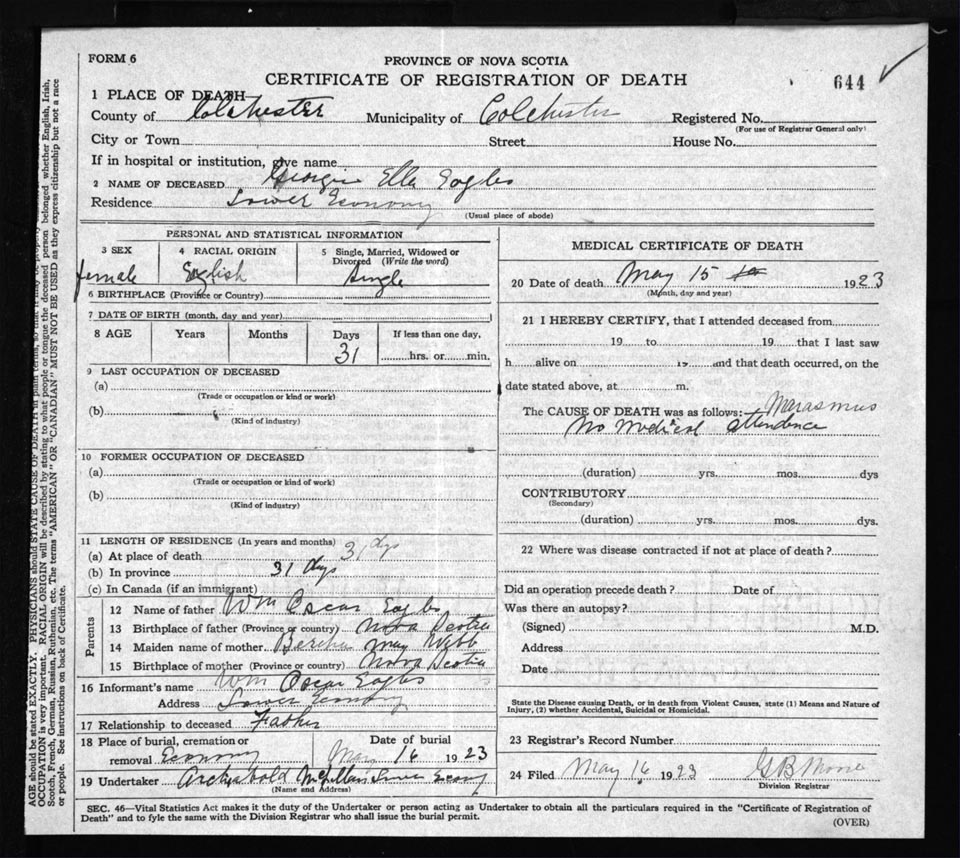 FORM 6
PROVINCE OF NOVA SCOTIA
CERTIFICATE OF REGISTRATION OF DEATH
644
1 PLACE OF DEATH
County of Colchester Municipality of Colchester Registered No.
(For use of Registrar General only)
City or Town Street House No.
If in hospital or institution, give name
2 NAME OF DECEASED Georgie Ella Eagles
Residence Lower Economy
(Usual place of abode)
PERSONAL AND STATISTICAL INFORMATION
3 SEX 4 RACIAL ORIGIN 5 Single, Married, Widowed or Divorced (Write the word)
female English Single
6 BIRTHPLACE (Province or Country)
7 DATE OF BIRTH (month, day and year)
8 AGE Years Months Days If less than one day,
31 hrs. or min.
9 LAST OCCUPATION OF DECEASED
(a)
(Trade or occupation or kind or work)
(b)
(Kind of industry)
10 FORMER OCCUPATION OF DECEASED
(a)
(Trade or occupation or kind of work)
(b)
(Kind of industry)
11 LENGTH OF RESIDENCE (In years and months)
(a) At place of death 31 dys
(b) In province 31 dys
(c) In Canada (if an immigrant)
Parents
12 Name of father Wm Oscar Eagles
13 Birthplace of father (Province or country) Nova Scotia
14 Maiden name of mother Bertha May Webb
15 Birthplace of mother (Province or country) Nova Scotia
16 Informant's name Wm Oscar Eagles
Address Lower Economy
17 Relationship to deceased Father
18 Place of burial, cremation or Date of burial
removal Economy May 16 1923
19 Undertaker Archibald McLellan Lower Econy
(Name and Address)
MEDICAL CERTIFICATE OF DEATH
20 Date of death May 15 1923
(Month, day and year)
21 I HEREBY CERTIFY, that I attended deceased from
19 to 19 that I last saw
h alive on 19 and that death occurred, on the
date stated above, at m.
The CAUSE OF DEATH was as follows: Marasmus
No Medical attendence
(duration) yrs. mos. dys
CONTRIBUTORY
(Secondary)
(duration) yrs. mos. dys.
22 Where was disease contracted if not at place of death?
Did an operation precede death? Date of
Was there an autopsy?
(Signed) M.D.
Address
Date
State the Disease causing Death, or in death from Violent Causes, state (1) Means and Nature of
Injury, (2) whether Accidental, Suicidal or Homicidal.
23 Registrar's Record Number
24 Filed May 16 1923 G B Moore
Division Registrar
SEC. 46—Vital Statistics Act makes it the duty of the Undertaker or person acting as Undertaker to obtain all the particulars required in the "Certificate of Registration of
Death" and to fyle the same with the Division Registrar who shall issue the burial permit.
(OVER)
AGE should be stated EXACTLY. PHYSICIANS should STATE CAUSE OF DEATH in plain terms, so that it may be properly
OCCUPATION is very important. RACIAL ORIGIN will be described by stating to what people or tongue the deceased person belonged whether English, Irish,
Scotch, French, German, Russian, Ruthenian, etc. The terms "AMERICAN" OR "CANADIAN" MUST NOT BE USED as they express citizenship but not a race
or people. See instructions on back of Certificate.